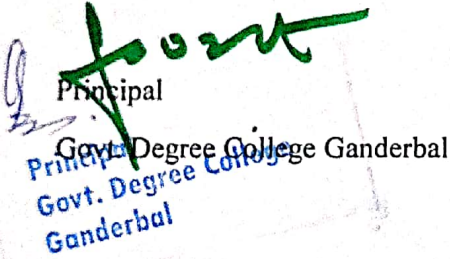 Principal
Govt Degree College Ganderbal
Principal
Govt. Degree College
Ganderbal